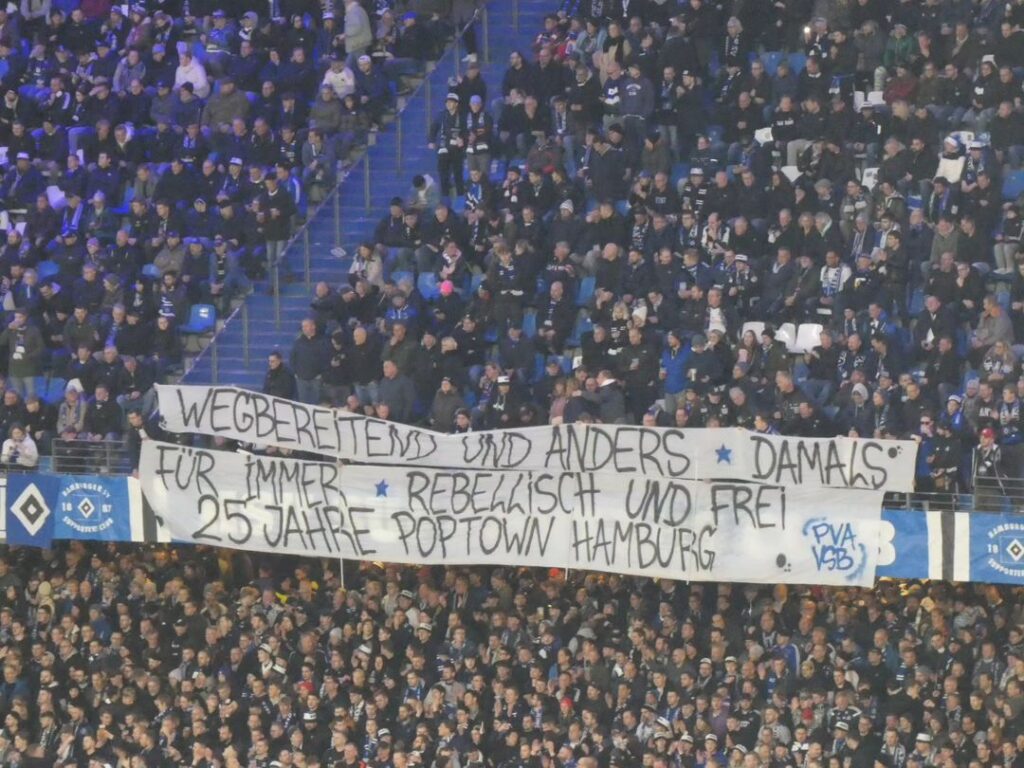 WEGBEREITEND UND ANDERS ★ DAMALS
FÜR IMMER ★ REBELLISCH UND FREI
25 JAHRE POPTOWN HAMBURG
PVA
VSB
HAMBURGER SV
18 87
SUPPORTERS CLUB